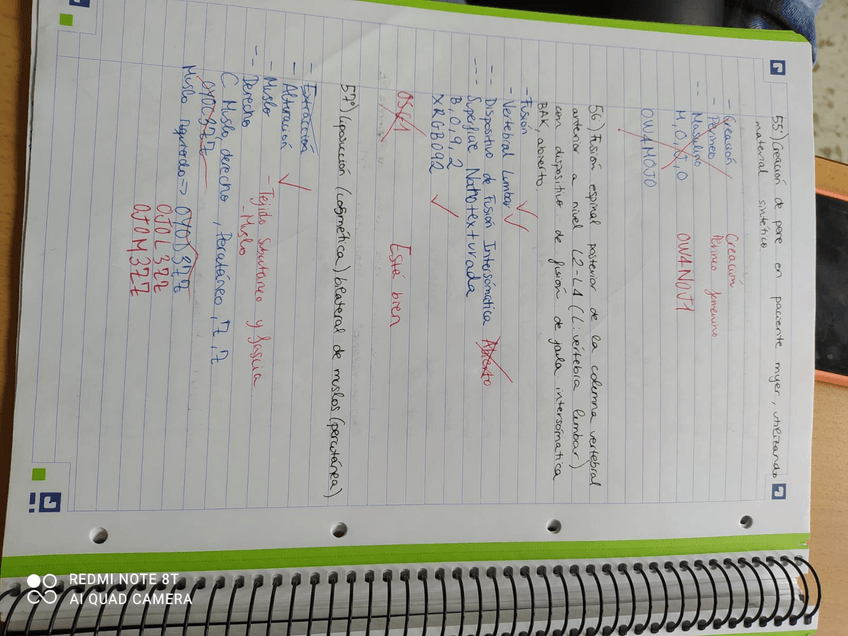 55) Creación de pene en paciente mujer, utilizando
material sintético
- Creación Creación
- Perineo Perineo femenino
-- Masculino
M, 0, J, 0 0W4N0J1
0W4M0J0
56) Fusión espinal posterior de la columna vertebral
anterior a nivel L2-L4 (L: vértebra lumbar)
con dispositivo de fusión de jaula intersomática
BAK, abierto.
- Fusión ✓
- Vertebral Lumbar ✓
-- Dispositivo de Fusión Intersomática Abierto
--- Superficie Nanotexturada
B, 0, 9, 2
XRGB092 ✓
Está bien
57º) Liposucción (cosmética) bilateral de muslos (percutánea)
- Extracción
- Alteración ✓
- Muslo - Tejido subcutaneo y fascia
-- Derecho - Muslo
C Muslo derecho, Percutáneo, Z, Z
0Y0C3ZZ
Muslo izquierdo => 0Y0D3ZZ
0J0L3ZZ
0J0M3ZZ
REDMI NOTE 8T
AI QUAD CAMERA